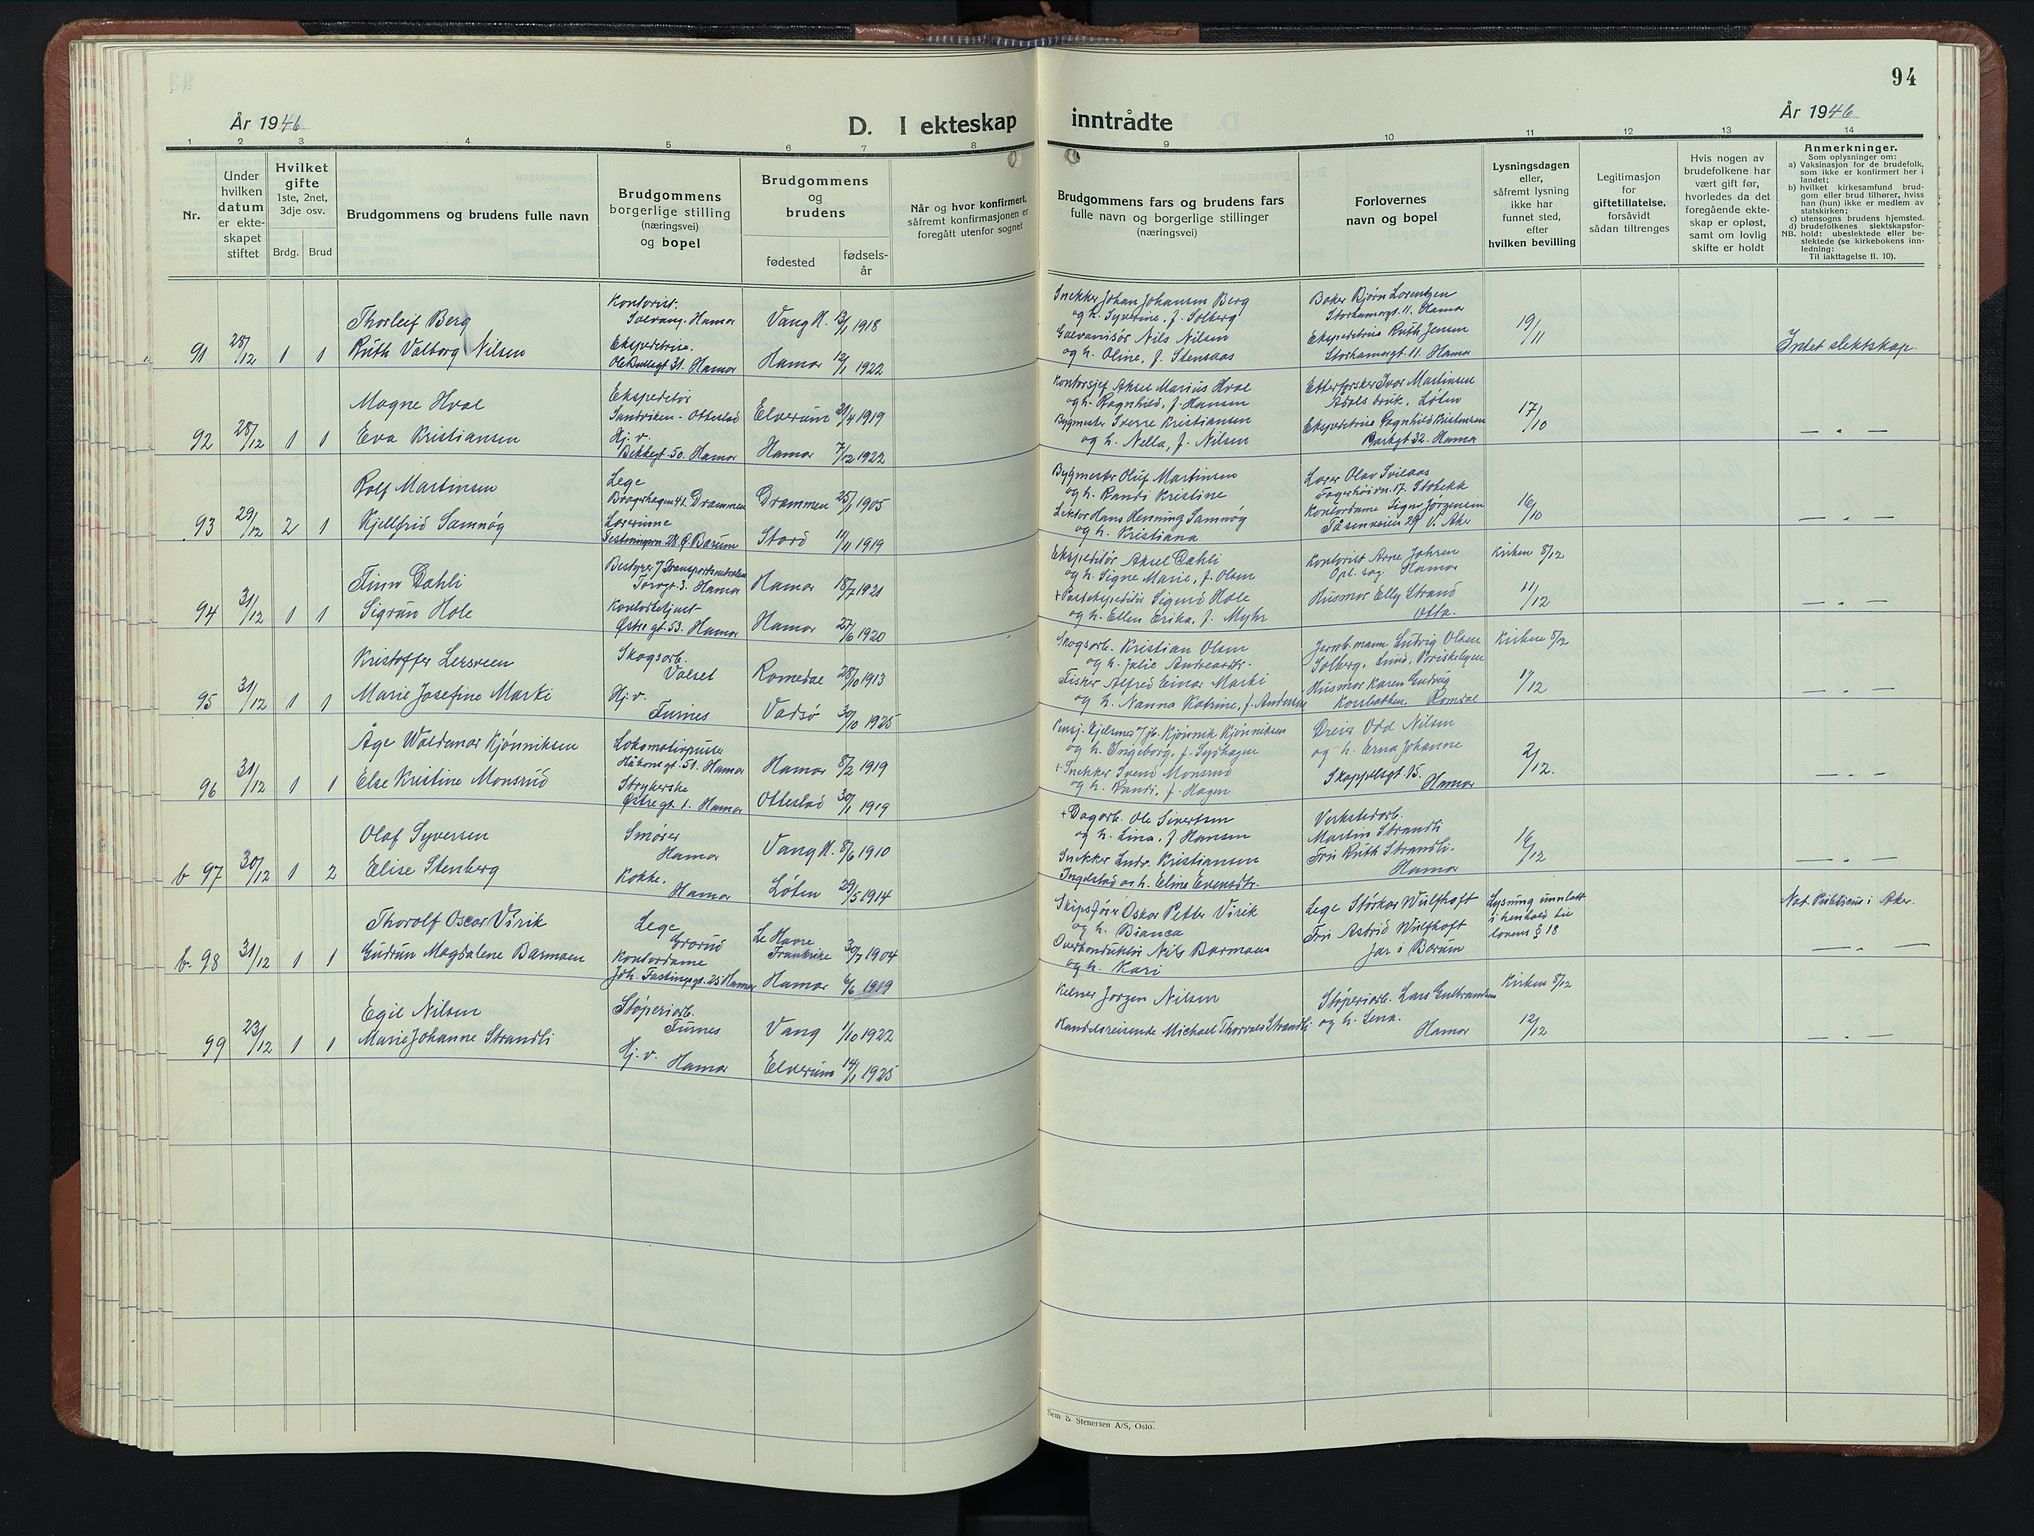 94
År 1946
År 1946
D. I ekteskap inntrådte
1 2 3 4 5 6 7 8 9 10 11 12 13 14
Nr.
Under hvilken datum er ekteskapet stiftet
Hvilket gifte
1ste, 2net, 3dje osv.
Brdg. Brud
Brudgommens og brudens fulle navn
Brudgommens borgerlige stilling (næringsvei) og bopel
Brudgommens og brudens
fødested
fødselsår
Når og hvor konfirmert, såfremt konfirmasjonen er foregått utenfor sognet
Brudgommens fars og brudens fars fulle navn og borgerlige stillinger (næringsvei)
Forlovernes navn og bopel
Lysningsdagen eller, såfremt lysning ikke har funnet sted, efter hvilken bevilling
Legitimasjon for giftetillatelse, forsåvidt sådan tiltrenges
Hvis nogen av brudefolkene har vært gift før, hvorledes da det foregående ekteskap er opløst, samt om lovlig skifte er holdt
Anmerkninger.
Som oplysninger om:
a) Vaksinasjon for de brudefolk, som ikke er konfirmert her i landet;
b) hvilket kirkesamfund brudgom eller brud tilhører, hvis han (hun) ikke er medlem av statskirken;
c) utensogns brudens hjemsted.
d) brudefolkenes slektskapsforhold: ubeslektede eller beslektede (se kirkebokens innledning:
NB. Til iakttagelse II. 10).
91 28/12 1 1
Thorleif Berg
Ruth Valborg Nilsen
Kontorist.
Solvang. Hamar
Ekspeditrise.
Ole Bullsgt 31. Hamar
Vang H. 13/1 1918
Hamar 12/1 1922
Snekker Johan Johansen Berg
og h. Syverine, f. Solberg
Galvanisør Nils Nilsen
og h. Oline, f. Stensaas
Baker Bjørn Lorentzen
Storhamargt. 11. Hamar
Ekspeditrise Ruth Jensen
Storhamargt. 11. Hamar
19/11
Intet slektskap.
92 28/12 1 1
Magne Hval
Eva Kristiansen
Ekspeditør
Sandviken - Ottestad
Hj. v.
Bekkegt. 50. Hamar
Elverum 21/4 1919
Hamar 7/12 1922
Kontorsjef Aksel Marius Hval
og h. Ragnhild, f. Hansen
Bygmester Sverre Kristiansen
og h. Nella, f. Nilsen
Etterforsker Ivar Martinsen
Ådals bruk, Løten
Ekspeditrise Ragnhild Kristiansen
Parkgt 32. Hamar
17/10
— „ —
93 29/12 2 1
Rolf Martinsen
Kjellfrid Samnøy
Lege
Bragerhagen 41. Drammen
Lærerinne
28 Ø. Bærum
Drammen 25/1 1905
Stord 12/11 1919
Bygmester Oluf Martinsen
og h. Randi Kristine
Lektor Hans Henning Samnøy
og h. Kristiana
Lærer Olav Svilaas
Fagerhøivn. 17. Stabekk
Kontordame Signe Jørgensen
Tåsenveien 29 V. Aker
16/10
— „ —
94 31/12 1 1
Finn Dæhli
Sigrun Hole
Bestyrer 7 Transportsentralen
Torggt 3. Hamar
Østregt. 53. Hamar
Hamar 18/7 1921
Hamar 27/6 1920
Ekspeditør Aksel Dæhli
og h. Signe Marie, f. Olsen
Sigurd Hole
og h. Ellen Erika, f. Myhr
Kontorist Arne Johnsen
Hamar
Husmor Elly Strand
Otta.
Kirken 8/12
11/12
— „ —
95 31/12 1 1
Kristoffer Lersveen
Marie Josefine Marki
Skogsarb.
Valset
Hj. v.
Furnes
Romedal 28/10 1913
Vadsø 30/10 1925
Skogsarb. Kristian Olsen
og h. Julie Andreasdtr.
Fisker Alfred Einar Marki
og h. Nanna Katrine, f. Andersen
Jernb.mann Ludvig Olsen
Solberg, Lund, Briskebyen
Husmor Karen Ludvig
Korsbakken, Romedal
Kirken 8/12
17/12
— „ —
96 31/12 1 1
Åge Waldemar Kjønniksen
Else Kristine Monsrud
Lokomotivpusser
Håkonsgt. 51. Hamar
Strykerske
Østregt. 1. Hamar
Hamar 8/2 1919
Ottestad 30/1 1919
Pensj. Kjelsmed 7 jb. Kjønnik Kjønniksen
og h. Ingeborg, f. Sydhagen
+ Snekker Svend Monsrud
og h. Randi, f. Hagen
Dreier Odd Nilsen
og h. Erna Johanne
Skappelsgt 15.
Hamar
2/12.
— „ —
b 97 30/12 1 2
Olaf Syversen
Elise Stenberg
Smører
Hamar
Kokke.
Hamar
Vang H. 8/6 1910
Løten 29/5 1914
+ Dagarb. Ole Sivertsen
og h. Lina, f. Hansen
Snekker Ludv. Kristiansen
Ingelstad og h. Eline Evensdtr.
Verkstedarb.
Martin Strandli
Fru Ruth Strandli.
Hamar
16/12
— „ —
b. 98 31/12 1 1
Thorolf Oscar Virik
Gudrun Magdalene Barmoen
Lege
Grorud
Kontordame
Joh. Fastingsgt. 25 Hamar
Le Havre
Frankrike 30/7 1904
Hamar 6/6 1919
Skipsfører Oskar Petter Virik
og h. Bianca
Overkonduktør Nils Barmoen
og h. Kari
Lege Størkar Wulfhoft
Fru Astrid Wulfhoft
Jar i Bærum
Lysning unnlatt
i henhold til
lovens § 18
Not. Publicus i Aker.
— „ —
99 23/12 1 1
Egil Nilsen
Marie Johanne Strandli
Støperiarb.
Furnes
Hj. v. Hamar
Vang 1/10 1922
Elverum 14/1 1925
Kelner Jørgen Nilsen
Handelsreisende Michael Thorvald Strandli
Støperiarb. Lars Gulbrandsen
og h. Lena.
Hamar
Kirken 8/12
12/12
— „ —
Sem & Stenersen A/S, Oslo.